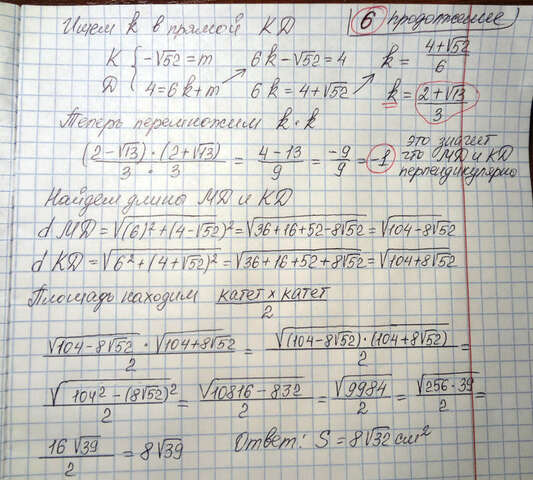 Ищем k в прямой KD (6 продолжение)
K { -√52 = m 6k - √52 = 4 k = (4+√52)/6
D { 4 = 6k + m 6k = 4 + √52 k = (2+√13)/3
Теперь перемножим k · k
(2-√13)/3 · (2+√13)/3 = (4-13)/9 = -9/9 = -1 это значит что MD и KD перпендикулярно
Найдем длины MD и KD
d MD = √((6)² + (4-√52)²) = √(36+16+52-8√52) = √(104-8√52)
d KD = √(6² + (4+√52)²) = √(36+16+52+8√52) = √(104+8√52)
Площадь находим (катет × катет)/2
(√(104-8√52) · √(104+8√52))/2 = √((104-8√52)·(104+8√52))/2 =
√(104² - (8√52)²)/2 = √(10816-832)/2 = √9984/2 = √(256·39)/2 =
16√39/2 = 8√39 Ответ: S = 8√32 см²